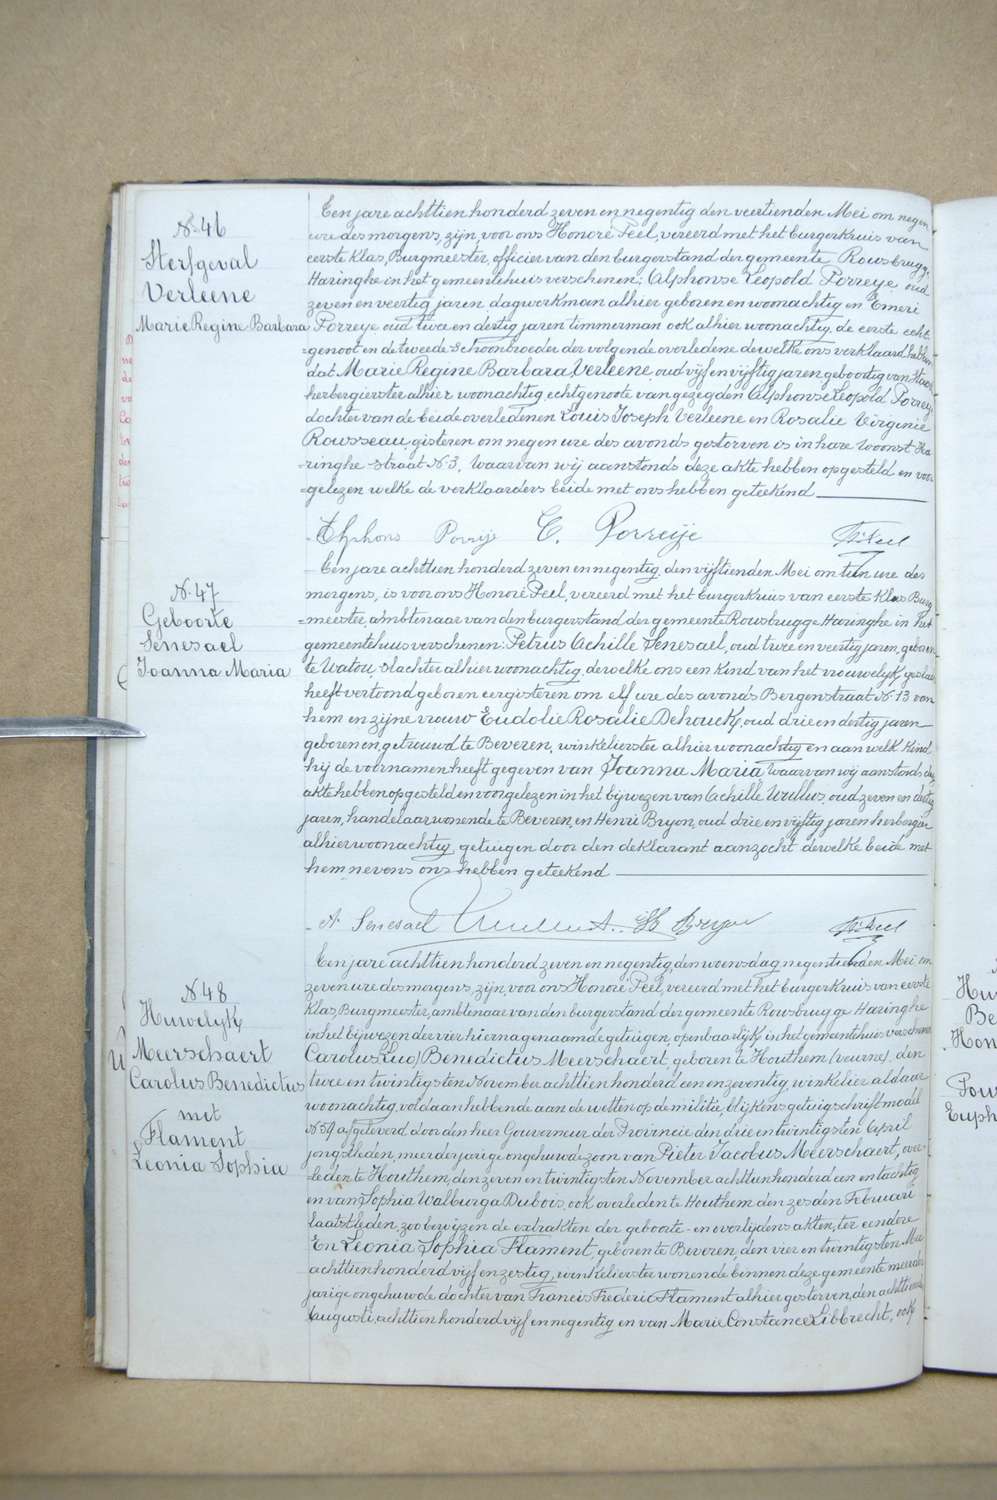 N. 46
Sterfgeval
Verleene
Marie Regine Barbara
Een jare achttien honderd zeven en negentig den veertienden Mei om negen
ure des morgens, zijn, voor ons Honoré Feel, vereerd met het burgerkruis van
eerste klas, Burgmeester, officier van den burgerstand der gemeente Rousbrugge
Haringhe in het gemeentehuis verschenen: Alphonse Leopold Porreye oud
zeven en veertig jaren dagwerkman alhier geboren en woonachtig en Emeri
Porreye oud twee en dertig jaren timmerman ook alhier woonachtig, de eerste echt
=genoot en de tweede schoonbroeder der volgende overledene dewelke ons verklaard hebben
dat Marie Regine Barbara Verleene, oud vijf en vijftig jaren geboortig van
herbergierster alhier woonachtig echtgenoote van gezegden Alphonse Leopold Porreye
dochter van de beide overledenen Louis Joseph Verleene en Rosalie Virginie
Rousseau gisteren om negen ure des avonds gestorven is in hare woonst Ha
=ringhe straat N. 3, Waarvan wij aanstonds deze akte hebben opgesteld en voor
=gelezen welke de verklaarders beide met ons hebben geteekend
Alphons Porreije E. Porreije H. Feel
N. 47
Geboorte
Senesael
Joanna Maria
Een jare achttien honderd zeven en negentig, den vijftienden Mei om tien ure des
morgens, is voor ons Honoré Feel, vereerd met het burgerkruis van eerste klas Burg
=meester, ambtenaar van den burgerstand der gemeente Rousbrugge Haringhe in het
gemeentehuis verschenen: Petrus Achille Senesael, oud twee en veertig jaren, geboren
te Watou, slachter alhier woonachtig, dewelke ons een kind van het vrouwelijk geslacht
heeft vertoond geboren eergisteren om elf ure des avonds Bergenstraat N. 13 van
hem en zijne vrouw Eudolie Rosalie Dehouck, oud drie en dertig jaren
geboren en getrouwd te Beveren, winkelierster alhier woonachtig en aan welk kind
hij de voornamen heeft gegeven van Joanna Maria Waarvan wij aanstonds dez
akte hebben opgesteld en voorgelezen in het bijwezen van Achille oud zeven en dertig
jaren, handelaar wonende te Beveren, en Henri Bryon, oud drie en vijftig jaren herbergier
alhier woonachtig, getuigen door den deklarant aanzocht dewelke beide met
hem nevens ons hebben geteekend
A Senesael H Bryon H. Feel
N. 48
Huwelijk
Meerschaert
Carolus Benedictus
met
Flament
Leonia Sophia
Een jare achttien honderd zeven en negentig, den woensdag negentienden Mei om
zeven ure des morgens, zijn, voor ons Honoré Feel, vereerd met het burgerkruis van eerste
klas, Burgmeester, ambtenaar van den burgerstand der gemeente Rousbrugge Haringhe
in het bijwezen der vier hiernagenaamde getuigen, openbaarlijk in het gemeentehuis verschenen
Carolus Ludo Benedictus Meerschaert, geboren te Houthem (Veurne), den
twee en twintigsten November achttien honderd een en zeventig, winkelier aldaar
woonachtig, voldaan hebbende aan de wetten op de militie, blijkens getuigschrift model
N. 59 afgeleverd door den heer Gouverneur der Provincie den drie en twintigsten April
jongstleden, meerderjarige ongehuwde zoon van Pieter Jacobus Meerschaert, over
=leden te Houthem, den zeven en twintigsten November achttien honderd een en tachtig
en van Sophia Walburga Dubois, ook overleden te Houthem den zesden Februari
laatstleden, zoo bewijzen de extrakten der geboorte- en overlijdens akten, ter eendere
En Leonia Sophia Flament, geboren te Beveren, den vier en twintigsten Mei
achttien honderd vijf en zestig, winkelierster wonende binnen deze gemeente meerder
jarige ongehuwde dochter van Francis Frederic Flament alhier gestorven den achttienden
Augusti, achttien honderd vijf en negentig en van Marie Constance Libbrecht, ook